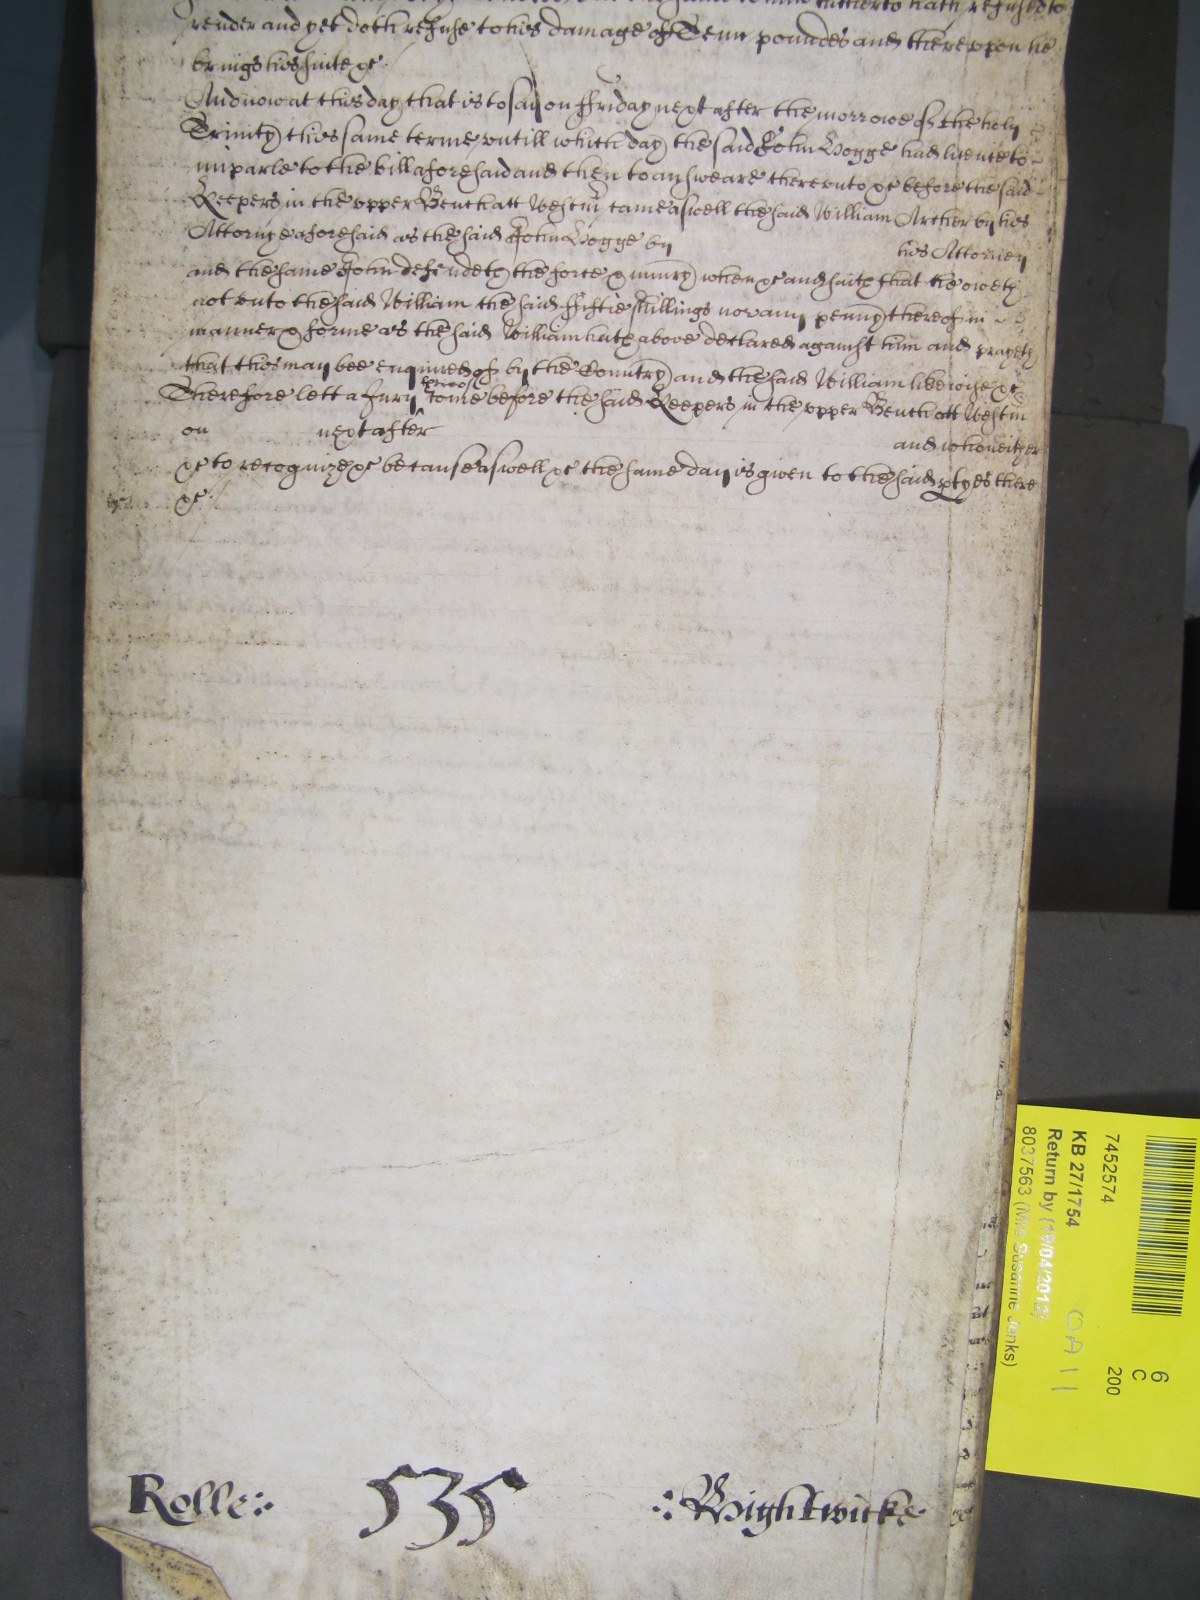 hitherto hath refused to
render and yet doth refuse to his damage of Tenn poundes and thereuppon he
brings his suite &c
And now at this day that is to say on ffriday next after the morrowe of the holy
Trinity this same terme untill which day the said John Hogge had licence to
imparle to the bill aforesaid and then to answeare thereunto &c before the said
Keepers in the upper Bench att Westm came aswell the said William Archer by his
Attornye aforesaid as the said John Hogge by his Attorney
and the same John defendeth the force & iniury when &c and saith that he oweth
not unto the said William the said ffiftie shillings nor any penny thereof in
manner & forme as the said William hath above declared against him and prayeth
that this may bee enquired of by the Country and the said William likewise &c
Therefore lett a Jury come before the said Keepers in the upper Bench att Westm
on next after and who neither
&c to recognize &c because aswell &c the same day is given to the said ptyes there
&c
Rolle 535 Wightwicke
7452574
KB 27/1754
Return by (19/04/2012)
8037563 (Mrs Susanne Jenks)
6
C
200